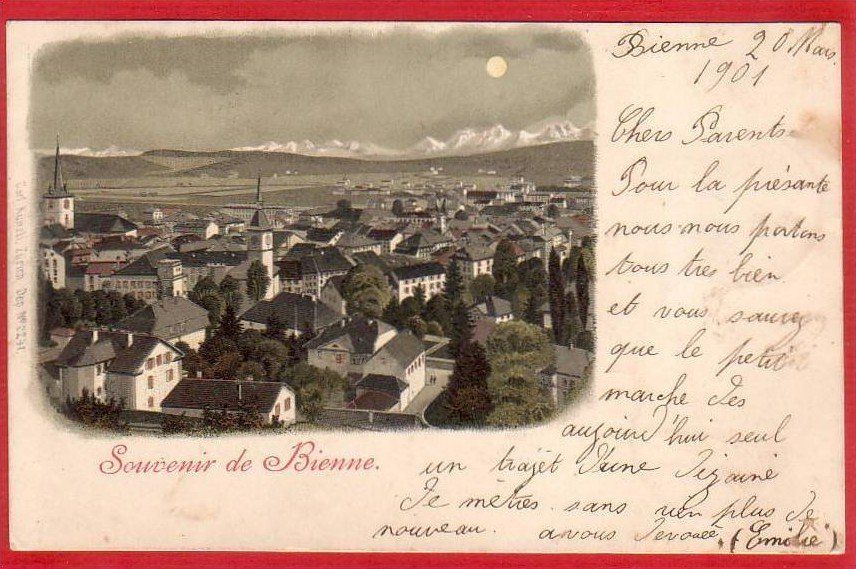 Bienne 20 Mars.
1901
Chers Parents
Pour la présante
nous nous portons
tous tres bien
et vous saurez
que le petit
marche des
aujourd'hui seul
un trajet d'une dizaine
de mètres sans rien plus de
nouveau. a vous devouée. (Emilie)
Souvenir de Bienne.